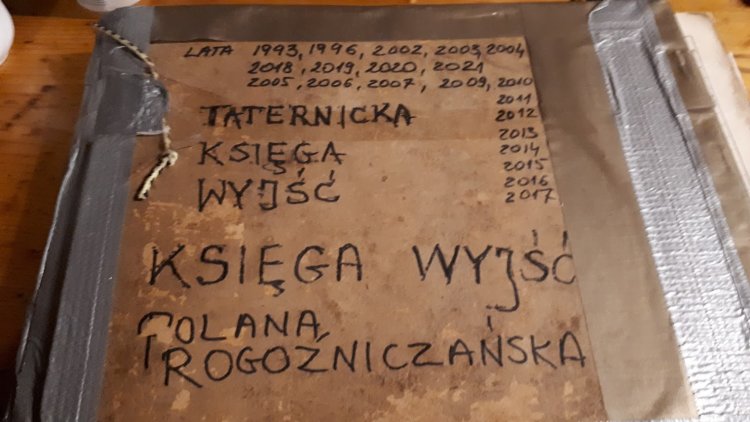 LATA 1993, 1996, 2002, 2003, 2004
2018, 2019, 2020, 2021
2005, 2006, 2007, 2009, 2010
2011
2012
2013
2014
2015
2016
2017
TATERNICKA
KSIĘGA
WYJŚĆ
KSIĘGA WYJŚĆ
POLANA
ROGOŹNICZAŃSKA